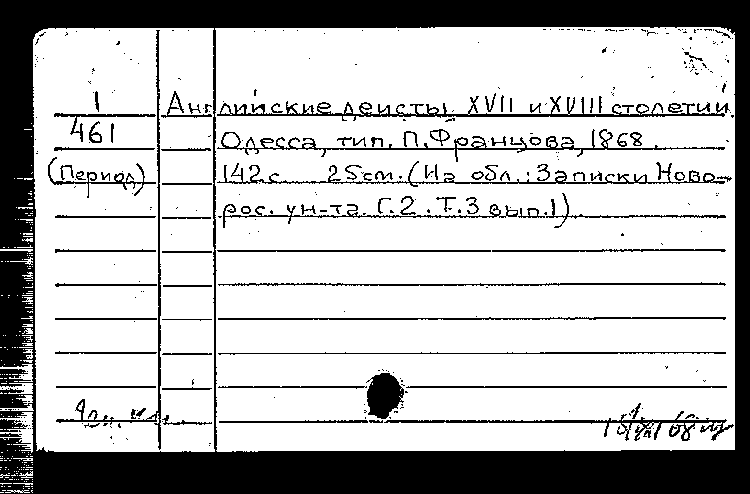 1
461
(Период)
Английские деисты XVII и XVIII столетий
Одесса, тип. П. Францова, 1868.
142 с 25 см. (На обл.: Записки Ново-
рос. ун-та. Г.2. Т.3 вып.1).